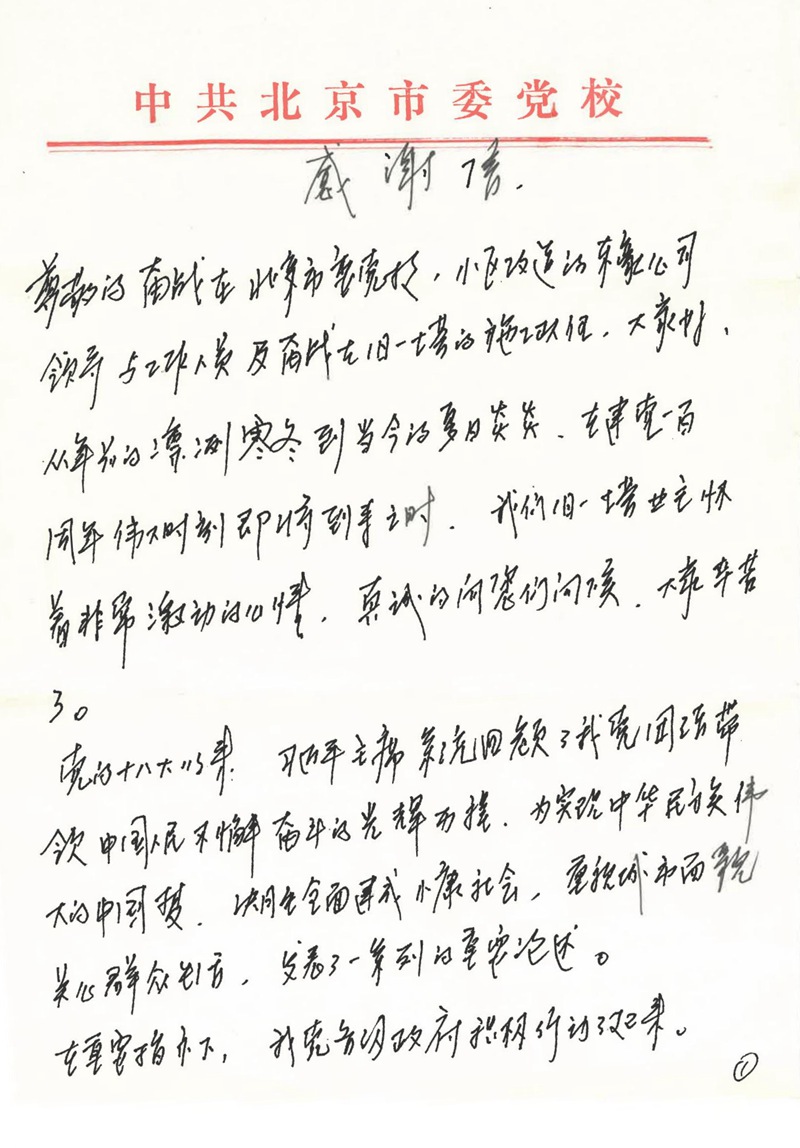 中共北京市委党校
感谢信.
尊敬的奋战在北京市委党校,小区改造的东豪公司
领导与工作人员及奋战在旧一塔的施工队伍,大家好,
从年前的凛冽寒冬到当今的夏日炎炎、在建党一百
周年伟大时刻即将到来之时. 我们旧一塔业主怀
着非常激动的心情,真诚的向您们问候、大家辛苦
了。
党的十八大以来. 习近平主席系统回顾了我党团结带
领中国人民不懈奋斗的光辉历程、为实现中华民族伟
大的中国梦、决胜全面建成小康社会,重视城市面貌
关心群众生活,发表了一系列的重要论述。
在重要指示下,我党各级政府积极行动了起来。
①